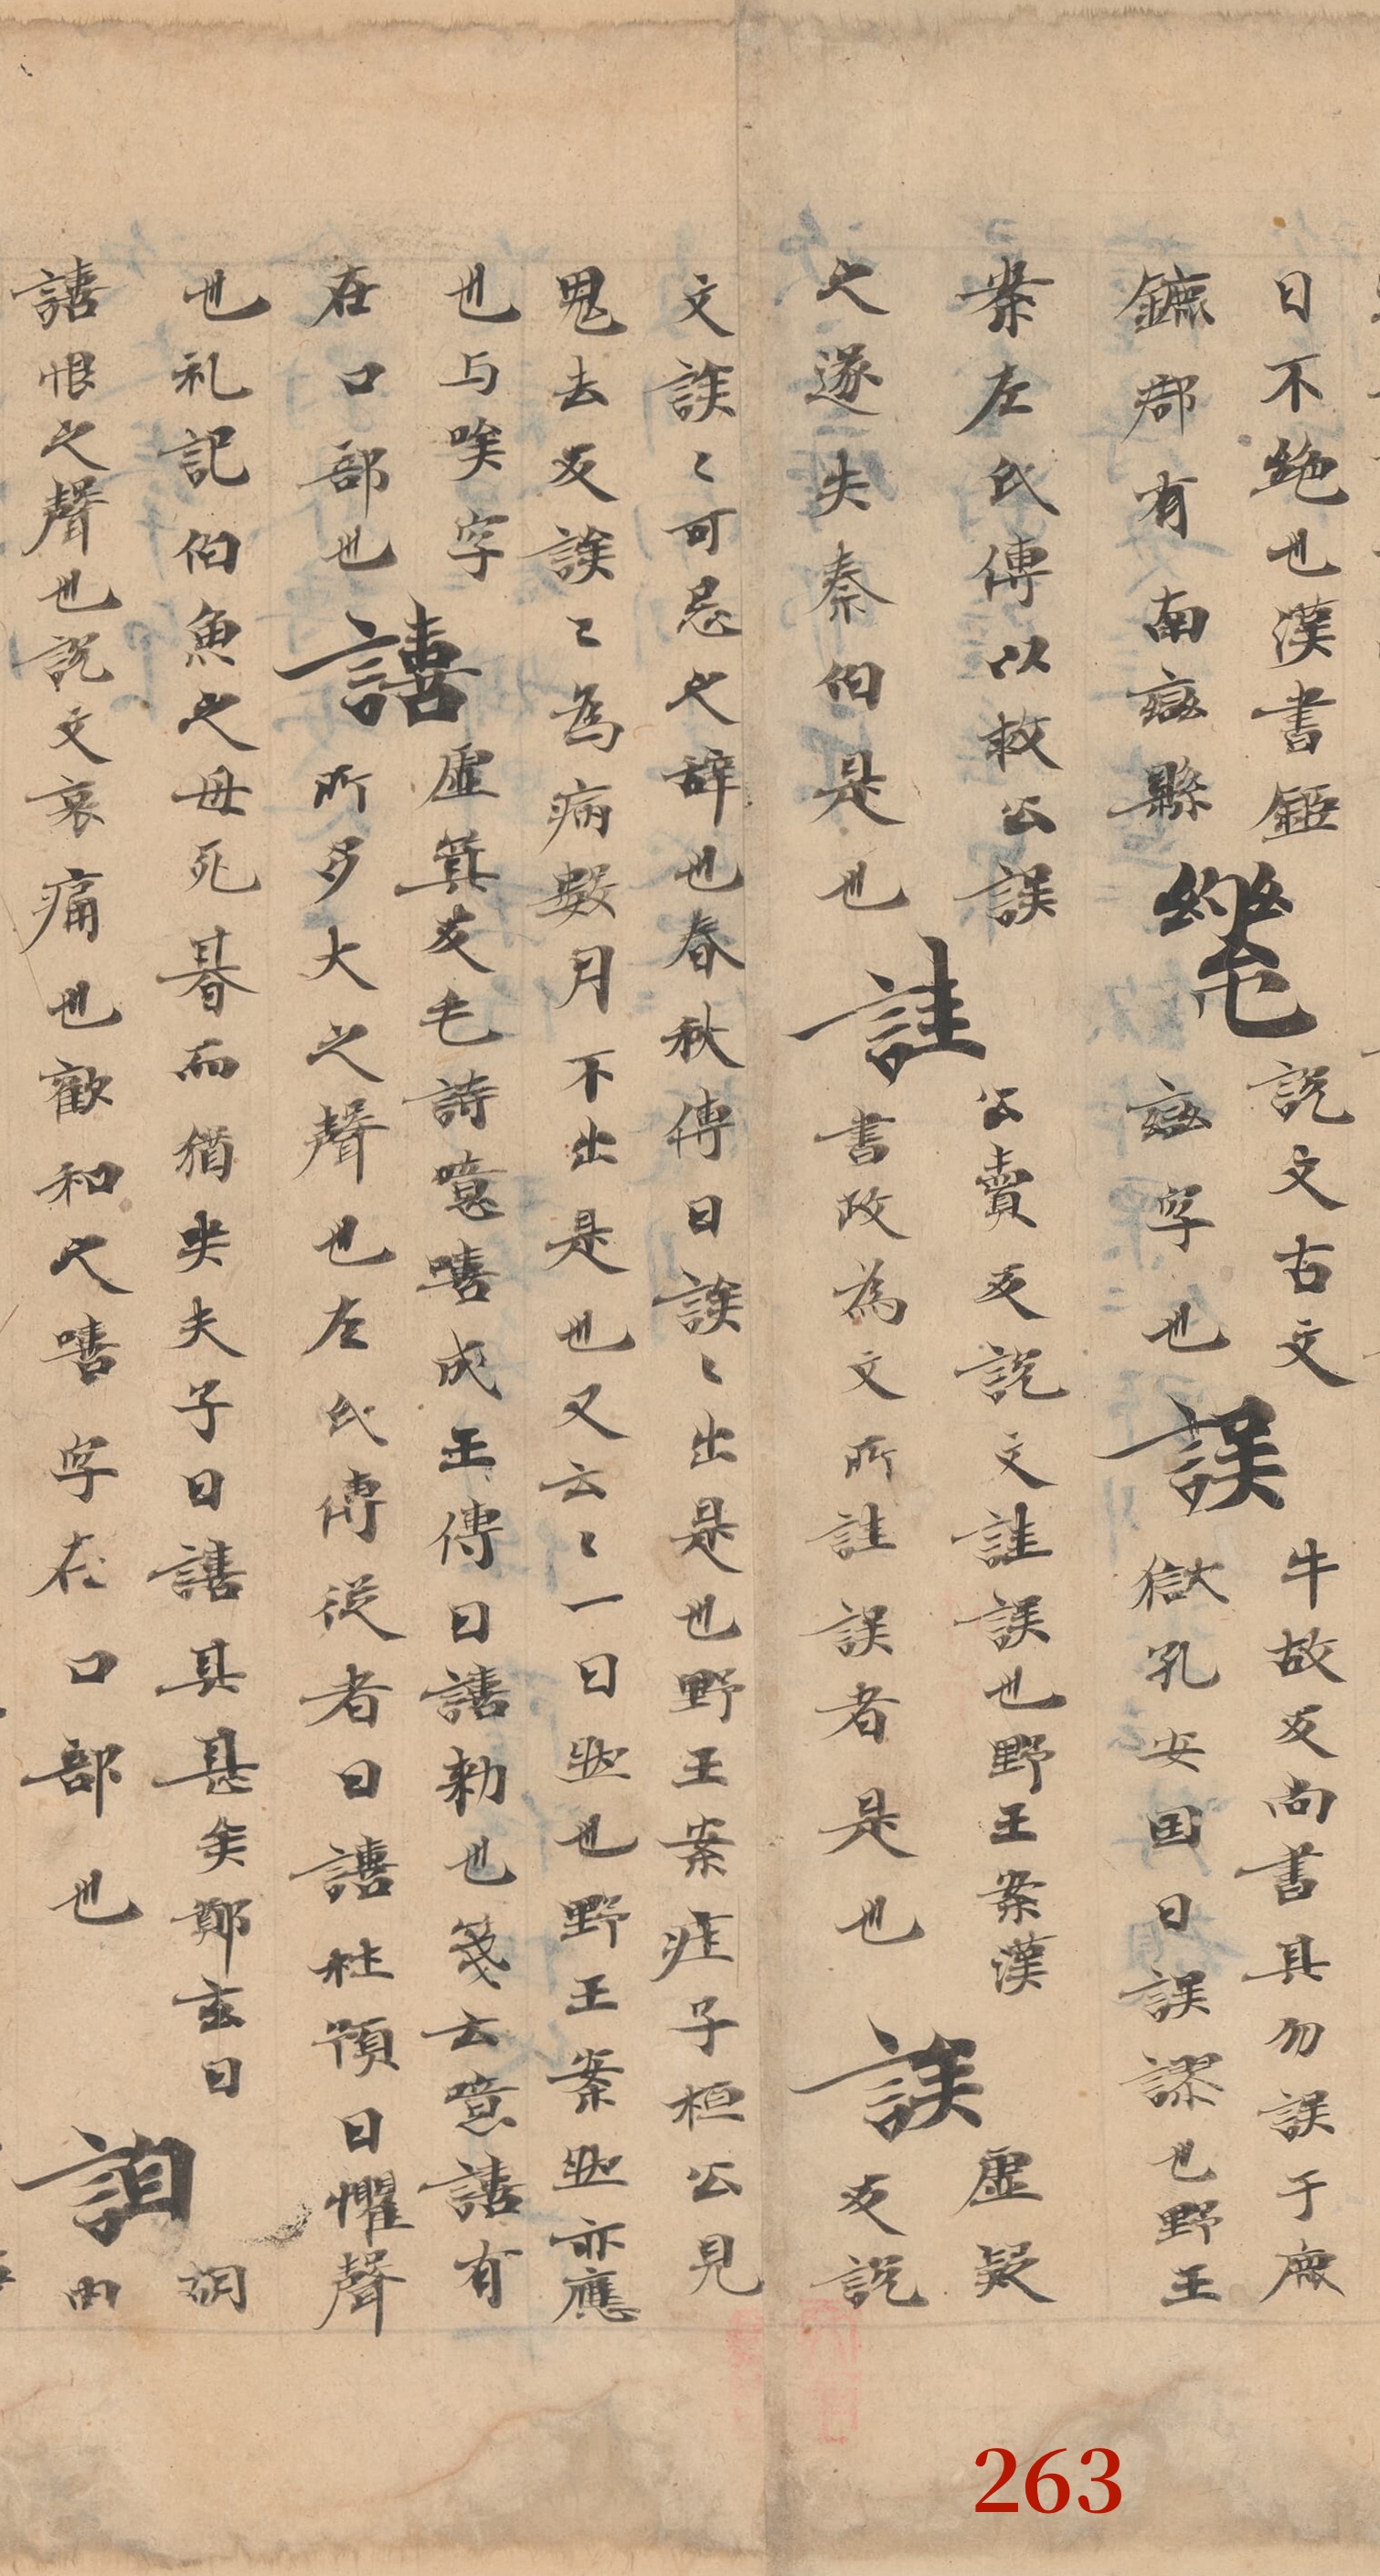 日不絶也漢書鉅
鏕郡有南䜌縣
𢆶
説文古文
䜌字也
誤
牛故反尚書其勿誤于庶
獄孔安国曰誤謬也野王
案左氏傳以救公誤
之遂失秦伯是也
詿
公賣反説文詿誤也野王案漢
書政為文所詿誤者是也
誒
虚疑
反説
文誒〻可惡之辞也春秋傳曰誒〻出是也野王案疰子桓公見
鬼去反誒〻為病數月不出是也又云〻一曰然也野王案然亦應
也与唉字
在口部也
譆
虚箕反毛詩噫嘻成王傳曰譆勑也箋云噫譆有
所多大之聲也左氏傳從者曰譆杜預曰懼聲
也礼記伯魚之母死朞而猶哭夫子曰譆其甚矣鄭玄曰
譆恨之聲也説文哀痛也歡和之嘻字在口部也
詯
胡
内
263